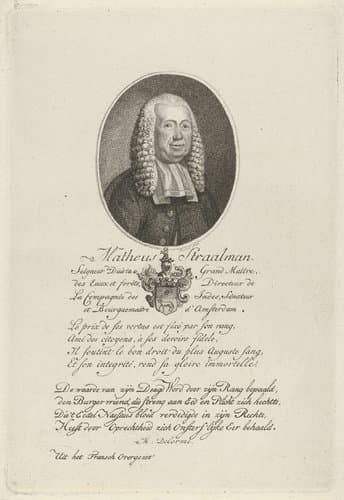 Matheus Straalman
Seigneur Duista Grand Maitre,
des Eaux et forêts, Directeur de
La Compagnie des Indes, Sénateur
et Bourguemaître d'Amsterdam.
Le prix de ses vertus est fixé par son rang.
Ami des citoyens, à ses devoirs fidele,
Il soutint le bon droit du plus Auguste sang,
Et son integrité, rend sa gloire immortelle.
De waarde van zijn Deugd Werd door zijn Rang bepaald,
den Burger vriend, die streng aan Eed en Pligt zich hechtte,
Die 't Eêdel Nassaus bloed verdedigde in zijn Rechte,
Heeft door Oprechtheid zich Onsterflijke Eer behaald.
M. Delorme.
Uit het Fransch Overgezet